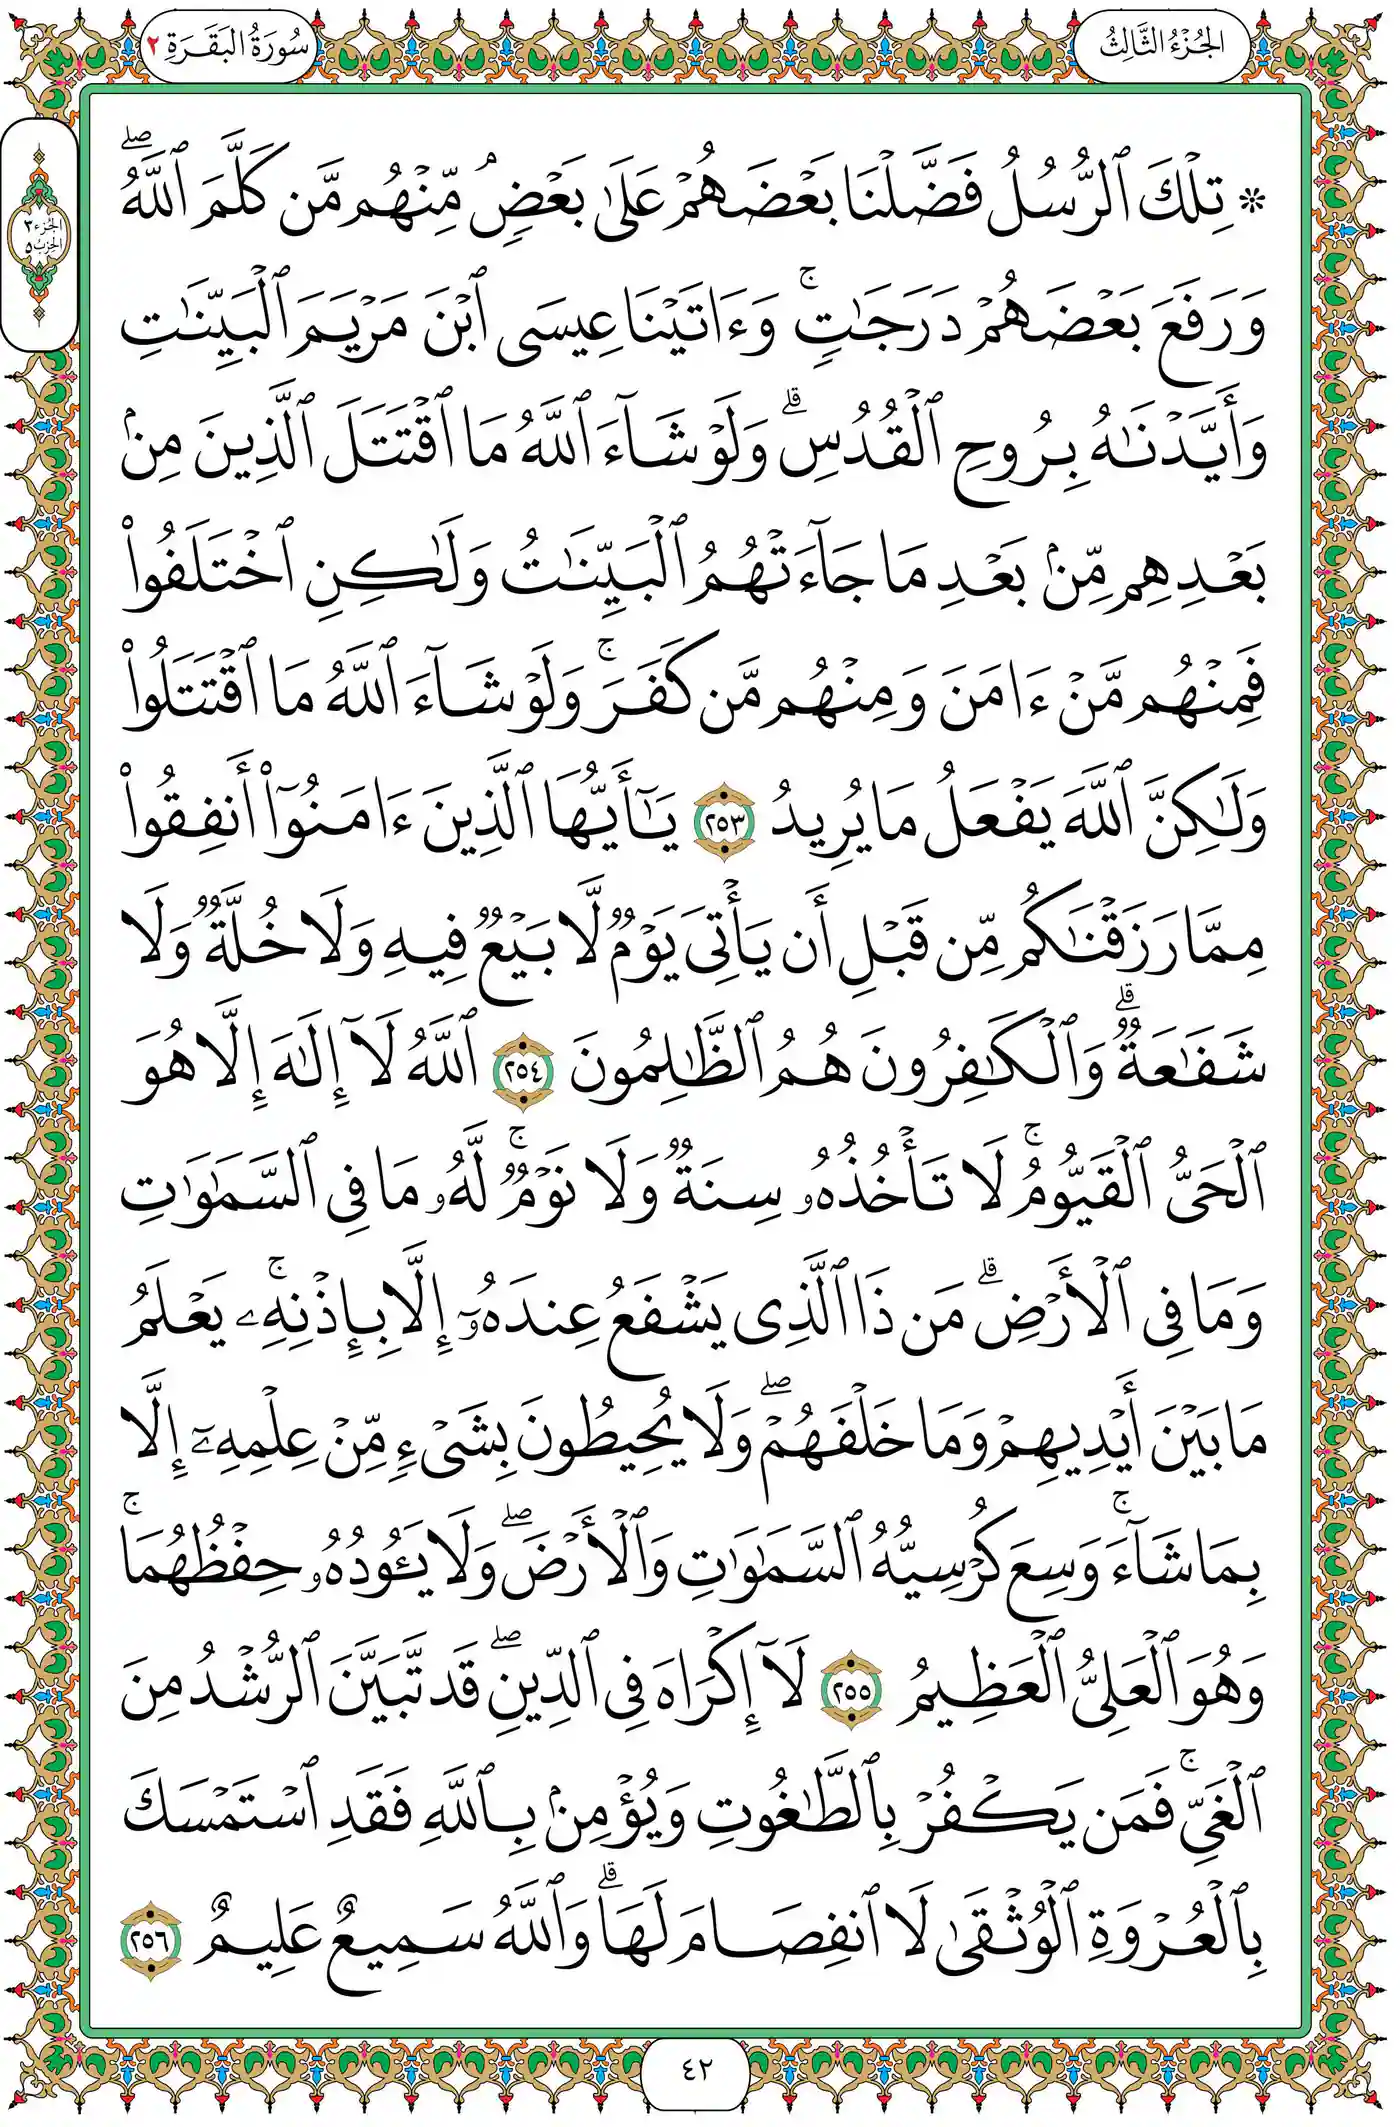 الجُزْءُ الثَّالِثُ
سُورَةُ البَقَرَةِ ٢
الجزء ٣
الحزب ٥
۞ تِلۡكَ ٱلرُّسُلُ فَضَّلۡنَا بَعۡضَهُمۡ عَلَىٰ بَعۡضٖۘ مِّنۡهُم مَّن كَلَّمَ ٱللَّهُۖ
وَرَفَعَ بَعۡضَهُمۡ دَرَجَٰتٖۚ وَءَاتَيۡنَا عِيسَى ٱبۡنَ مَرۡيَمَ ٱلۡبَيِّنَٰتِ
وَأَيَّدۡنَٰهُ بِرُوحِ ٱلۡقُدُسِۗ وَلَوۡ شَآءَ ٱللَّهُ مَا ٱقۡتَتَلَ ٱلَّذِينَ مِنۢ
بَعۡدِهِم مِّنۢ بَعۡدِ مَا جَآءَتۡهُمُ ٱلۡبَيِّنَٰتُ وَلَٰكِنِ ٱخۡتَلَفُواْ
فَمِنۡهُم مَّنۡ ءَامَنَ وَمِنۡهُم مَّن كَفَرَۚ وَلَوۡ شَآءَ ٱللَّهُ مَا ٱقۡتَتَلُواْ
وَلَٰكِنَّ ٱللَّهَ يَفۡعَلُ مَا يُرِيدُ ٢٥٣ يَٰٓأَيُّهَا ٱلَّذِينَ ءَامَنُوٓاْ أَنفِقُواْ
مِمَّا رَزَقۡنَٰكُم مِّن قَبۡلِ أَن يَأۡتِيَ يَوۡمٞ لَّا بَيۡعٞ فِيهِ وَلَا خُلَّةٞ وَلَا
شَفَٰعَةٞۗ وَٱلۡكَٰفِرُونَ هُمُ ٱلظَّٰلِمُونَ ٢٥٤ ٱللَّهُ لَآ إِلَٰهَ إِلَّا هُوَ
ٱلۡحَيُّ ٱلۡقَيُّومُۚ لَا تَأۡخُذُهُۥ سِنَةٞ وَلَا نَوۡمٞۚ لَّهُۥ مَا فِي ٱلسَّمَٰوَٰتِ
وَمَا فِي ٱلۡأَرۡضِۗ مَن ذَا ٱلَّذِي يَشۡفَعُ عِندَهُۥٓ إِلَّا بِإِذۡنِهِۦۚ يَعۡلَمُ
مَا بَيۡنَ أَيۡدِيهِمۡ وَمَا خَلۡفَهُمۡۖ وَلَا يُحِيطُونَ بِشَيۡءٖ مِّنۡ عِلۡمِهِۦٓ إِلَّا
بِمَا شَآءَۚ وَسِعَ كُرۡسِيُّهُ ٱلسَّمَٰوَٰتِ وَٱلۡأَرۡضَۖ وَلَا يَـُٔودُهُۥ حِفۡظُهُمَاۚ
وَهُوَ ٱلۡعَلِيُّ ٱلۡعَظِيمُ ٢٥٥ لَآ إِكۡرَاهَ فِي ٱلدِّينِۖ قَد تَّبَيَّنَ ٱلرُّشۡدُ مِنَ
ٱلۡغَيِّۚ فَمَن يَكۡفُرۡ بِٱلطَّٰغُوتِ وَيُؤۡمِنۢ بِٱللَّهِ فَقَدِ ٱسۡتَمۡسَكَ
بِٱلۡعُرۡوَةِ ٱلۡوُثۡقَىٰ لَا ٱنفِصَامَ لَهَاۗ وَٱللَّهُ سَمِيعٌ عَلِيمٌ ٢٥٦
٤٢